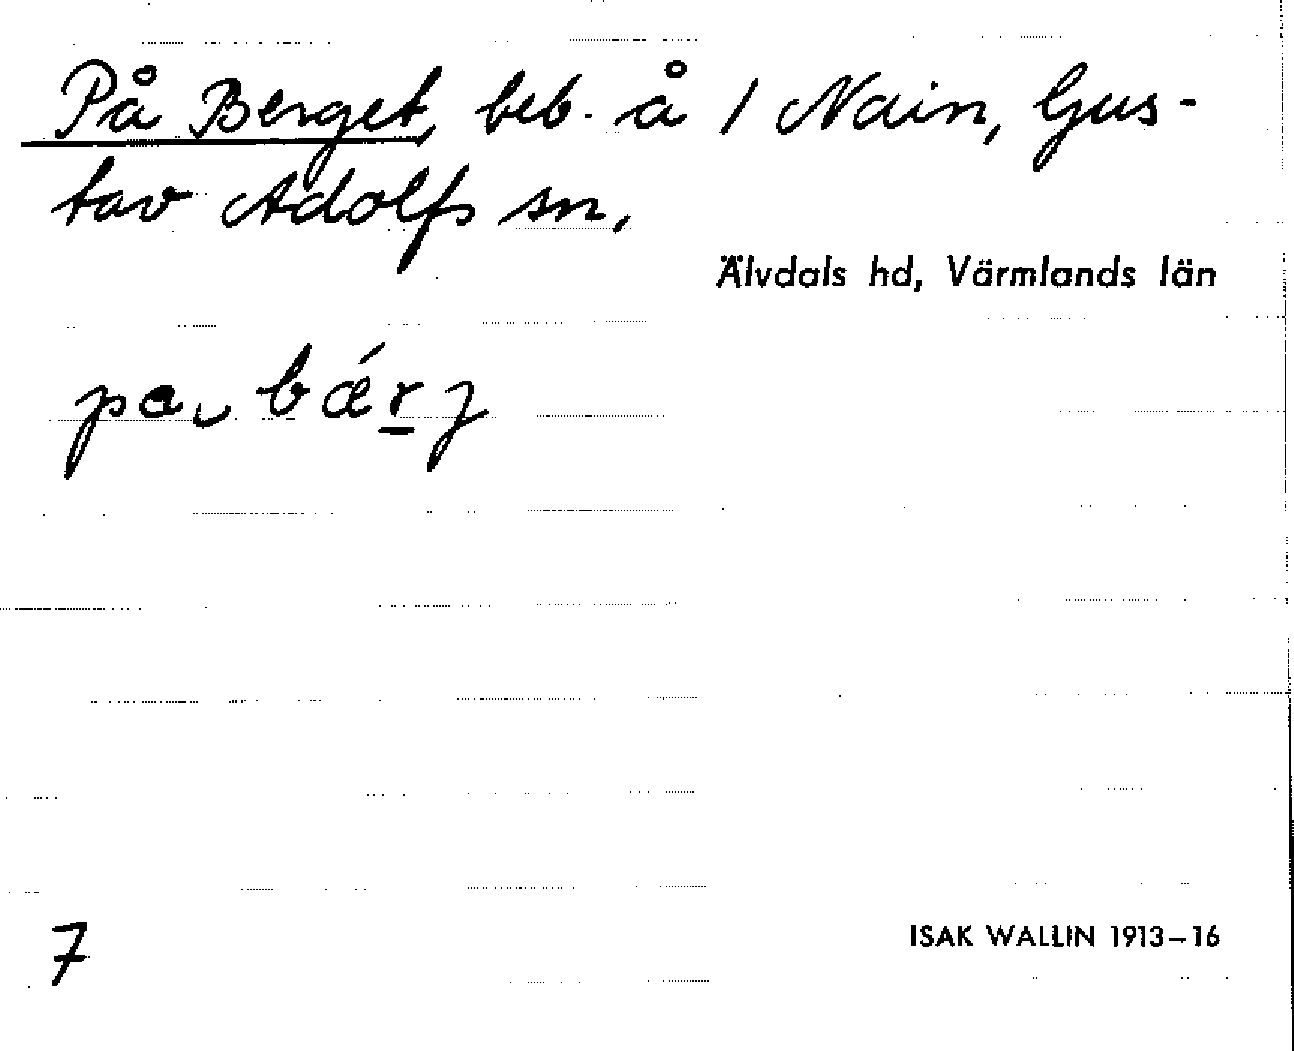 På Berget, beb. å 1 Nain, Gus-
tav Adolfs sn,
Älvdals hd, Värmlands län
pa‿bǽr̲j
7
ISAK WALLIN 1913–16